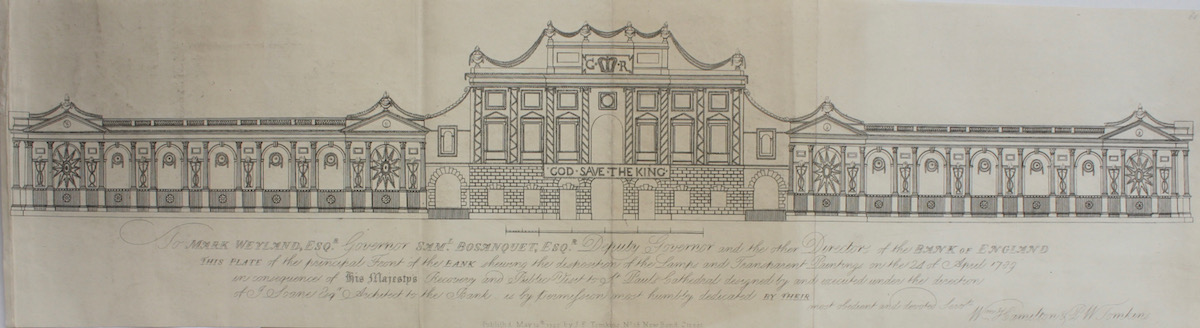 G R
GOD · SAVE · THE KING
To MARK WEYLAND, ESQ.R Governor SAM.L BOSANQUET, ESQ.R Deputy Governor and the other Directors of the BANK OF ENGLAND
THIS PLATE of the principal Front of the BANK shewing the disposition of the Lamps and Transparent Paintings on the 24 of April 1789
in consequence of His Majestys Recovery and Public Visit to St Pauls Cathedral designed by and executed under the direction
of J. Soane Esq.r Architect to the Bank is by permission most humbly dedicated BY THEIR
most obedient and devoted Serv.ts
W.m Hamilton & P W Tomkins
Publish'd May by P. W. Tomkins No. New Bond Street